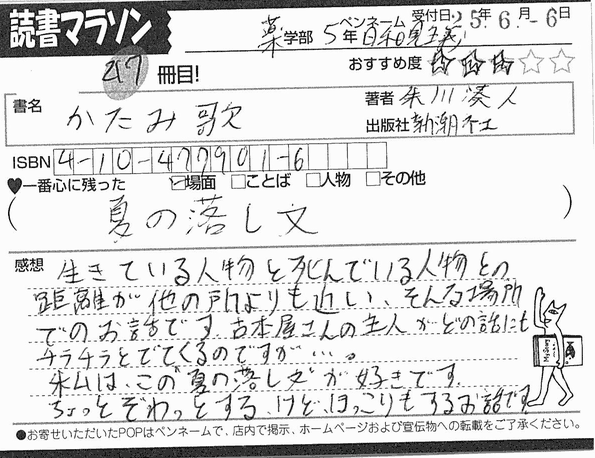 読書マラソン
薬学部 5年 ペンネーム 日和見主義 受付日 '05年6月-6日
217冊目! おすすめ度 ★★★☆☆
書名 かたみ歌 著者 朱川湊人
出版社 新潮社
ISBN 4-10-477901-6
♥一番心に残った ☑場面 □ことば □人物 □その他
(夏の落し文)
感想 生きている人物と死んでいる人物との
距離が他の所よりも近い、そんな場所
でのお話です。古本屋さんの主人がどの話にも
チラチラとでてくるのですが…。
私は、この"夏の落し文"が好きです。
ちょっとぞわっとする、けど、ほっこりもするお話です。
●お寄せいただいたPOPはペンネームで、店内で掲示、ホームページおよび宣伝物への転載をご了承ください。